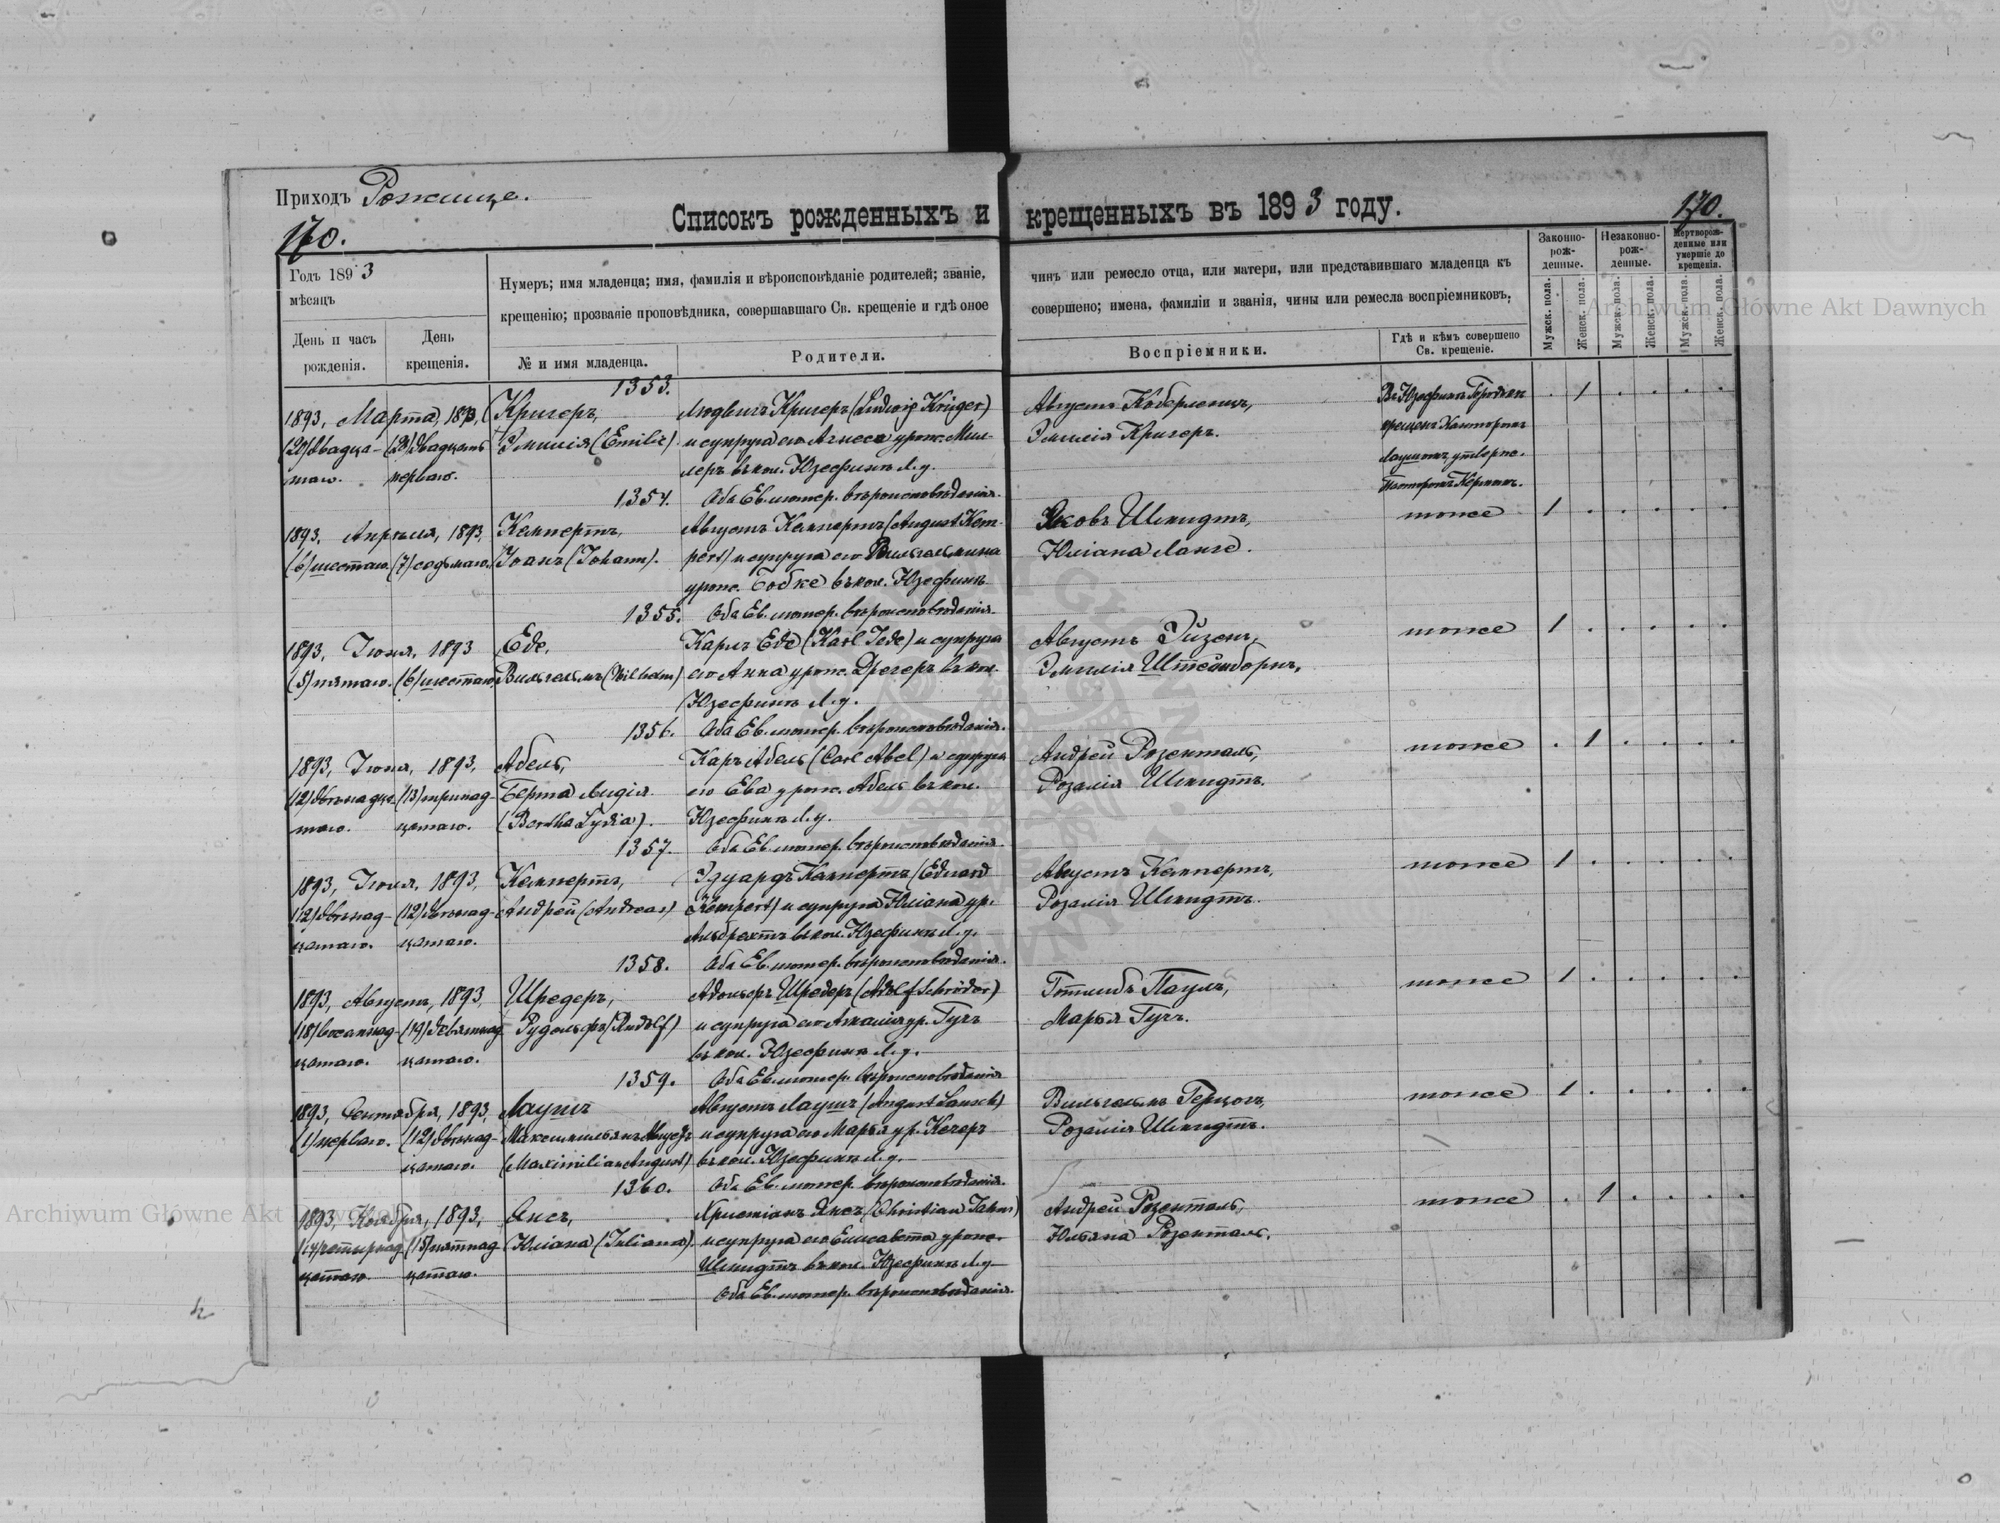 Приходъ Рожище.
170.
Списокъ рожденныхъ и крещенныхъ въ 1893 году.
170.
Годъ 1893
мѣсяцъ
День и часъ рожденія.
День крещенія.
Нумеръ; имя младенца; имя, фамилія и вѣроисповѣданіе родителей; званіе, чинъ или ремесло отца, или матери, или представившаго младенца къ
крещенію; прозваніе проповѣдника, совершавшаго Св. крещеніе и гдѣ оное совершено; имена, фамиліи и званія, чины или ремесла воспріемниковъ.
№ и имя младенца.
Родители.
Воспріемники.
Гдѣ и кѣмъ совершено Св. крещеніе.
Законно-рож-денные.
Незаконно-рож-денные.
Мертворож-денные или умершіе до крещенія.
Мужск. пола.
Женск. пола.
Мужск. пола.
Женск. пола.
Мужск. пола.
Женск. пола.
1353.
1893, Марта, 1893, Кригеръ, Людвигъ Кригеръ (Ludwig Krüger) Августъ
(20) двадца- (21) двадцать Эмилія (Emilie). и супруга его Агнеса урож. Мил- Эмилія Кригеръ.
таго. перваго. леръ въ кол. Юзефинъ Л. у.
1354. Оба Ев. лютер. вѣроисповѣданія.
1893, Апрѣля, 1893, Кемпертъ, Августъ Кемпертъ (August Kem- Яковъ Шмидтъ, тоже 1
(6) шестаго. (7) седьмаго. Іоанъ (Johann). pert) и супруга его Вильгельмина Юліана Ланге.
урож. Бобке въ кол. Юзефинъ
1355. Оба Ев. лютер. вѣроисповѣданія.
1893, Іюня, 1893 Еде, Карлъ Еде (Karl Jede) и супруга Августъ Ризенъ, тоже 1
(5) пятаго. (6) шестаго. Вильгельмъ (Wilhelm) его Анна урож. Дрегеръ въ кол. Эмилія Штейнборнъ.
Юзефинъ Л. у.
1356. Оба Ев. лютер. вѣроисповѣданія.
1893, Іюня, 1893, Абель, Карлъ Абель (Carl Abel) и супруга Андрей Розенталь, тоже 1
(12) двѣнадца- (13) тринад- Берта Лидія его Ева урож. Абель въ кол. Розалія Шмидтъ.
таго. цатаго. (Bertha Lydia). Юзефинъ Л. у.
1357. Оба Ев. лютер. вѣроисповѣданія.
1893, Іюня, 1893, Кемпертъ, Эдуардъ Кемпертъ (Eduard Августъ Кемпертъ, тоже 1
(12) двѣнад- (12) двѣнад- Андрей (Andreas) Kempert) и супруга Юліана ур. Розалія Шмидтъ.
цатаго. цатаго. Альбрехтъ въ кол. Юзефинъ Л. у.
1358. Оба Ев. лютер. вѣроисповѣданія.
1893, Августъ, 1893, Шредеръ, Адольфъ Шредеръ (Adolf Schröder) Готлибъ Пауль, тоже 1
(18) восемнад- (19) девятнад- Рудольфъ (Rudolf) и супруга его Амалія ур. Гучъ Марья Гучъ.
цатаго. цатаго. въ кол. Юзефинъ Л. у.
1359. Оба Ев. лютер. вѣроисповѣданія
1893, Сентября, 1893, Лаушъ Августъ Лаушъ (August Lausch) Вильгельмъ Герцогъ, тоже 1
(1) перваго. (12) двѣнад- Максимильянъ Августъ и супруга его Марья ур. Розалія Шмидтъ.
цатаго. (Maximilian August) въ кол. Юзефинъ Л. у.
1360. Оба Ев. лютер. вѣроисповѣданія.
1893, Ноября, 1893, Янсъ, Христіанъ Янсъ (Christian Jahns) Андрей Розенталь, тоже 1
(14) четырнад- (15) пятнад- Юліана (Juliana). и супруга его Елисавета урож. Юльяна Розенталь.
цатаго. цатаго. Шмидтъ въ кол. Юзефинъ Л. у.
Оба Ев. лютер. вѣроисповѣданія.
Archiwum Główne Akt Dawnych
Archiwum Główne Akt Dawnych